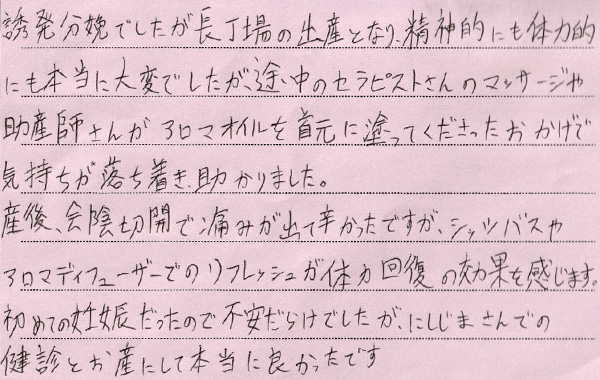 誘発分娩でしたが長丁場の出産となり、精神的にも体力的
にも本当に大変でしたが、途中のセラピストさんのマッサージや
助産師さんがアロマオイルを首元に塗ってくださったおかげで
気持ちが落ち着き、助かりました。
産後、会陰切開で痛みが出て辛かったですが、シッツバスや
アロマディフューザーでのリフレッシュが体力回復の効果を感じます。
初めての妊娠だったので不安だらけでしたが、にしじまさんでの
健診とお産にして本当に良かったです